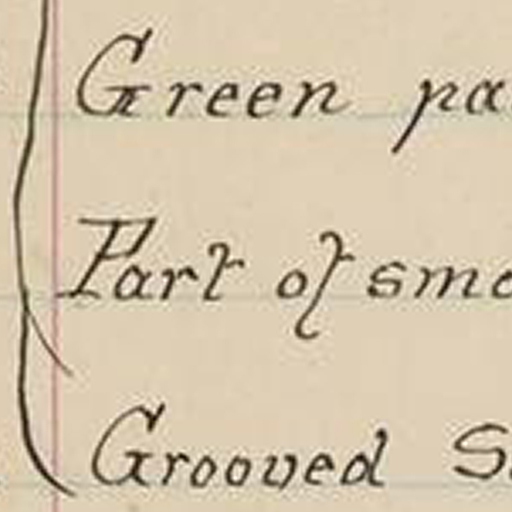 Green pa
Part of smo
Grooved S